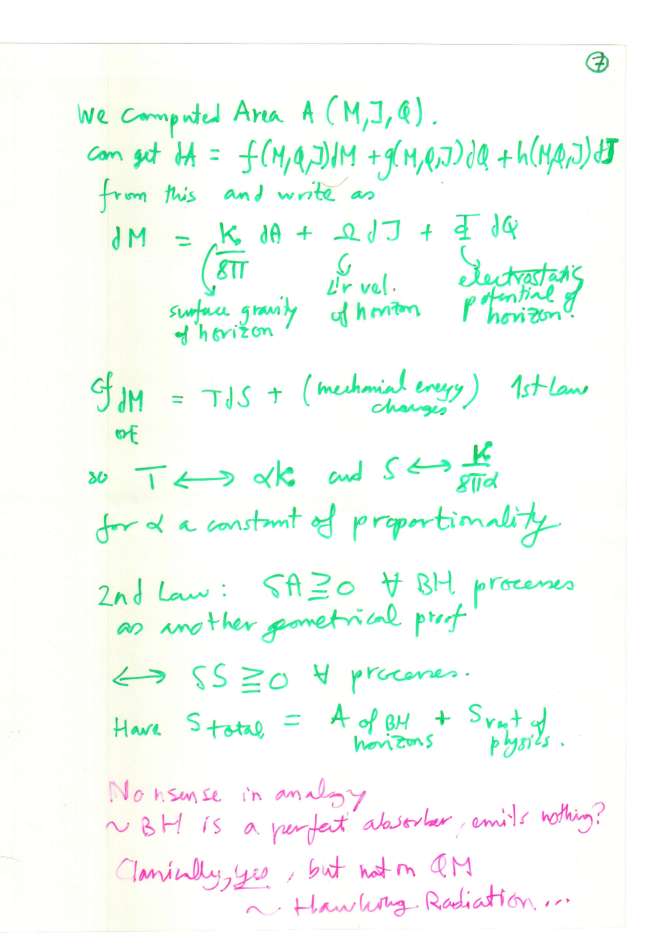 7
We computed Area A (M,J,Q).
can get dA = f(M,Q,J)dM + g(M,Q,J)dQ + h(M,Q,J)dJ
from this and write as
dM = K/8π dA + Ω dJ + Φ dQ
surface gravity of horizon
∠r vel. of horizon
electrostatic potential of horizon.
Cf dM = TdS + (mechanial energy changes) 1st Law
or E
so T ↔ αK and S ↔ K/8πα
for α a constant of proportionality.
2nd Law: δA ≧ 0 ∀ BH processes
as another geometrical proof
↔ δS ≧ 0 ∀ processes.
Have S total = A of BH horizons + S rest of physics.
Nonsense in analogy
~ BH is a perfect absorber, emits nothing?
Classically, yes, but not in QM
~ Hawking Radiation...